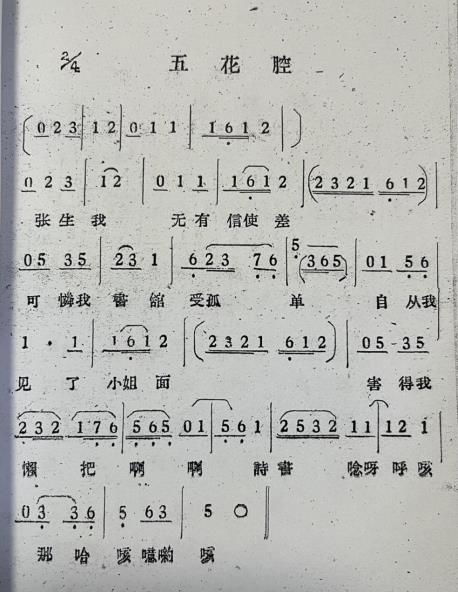 2/4 五花腔
(0 2 3 | 1 2 | 0 1 1 | 1 6 1 2 | )
0 2 3 | 1 2 | 0 1 1 | 1 6 1 2 | (2 3 2 1 6 1 2) |
张生我 无有信使差
0 5 3 5 | 2 3 1 | 6 2 3 7 6 | 5 (3 6 5) | 0 1 5 6 |
可憐我書館受孤单自从我
1 · 1 | 1 6 1 2 | (2 3 2 1 6 1 2) | 0 5 3 5 |
见了小姐面 害得我
2 3 2 1 7 6 | 5 6 5 0 1 | 5 6 1 | 2 5 3 2 1 1 | 1 2 1
懒把啊啊詩書唸呀呼咳
0 3 3 6 | 5 6 3 | 5 0 ||
那哈咳噁喲咳